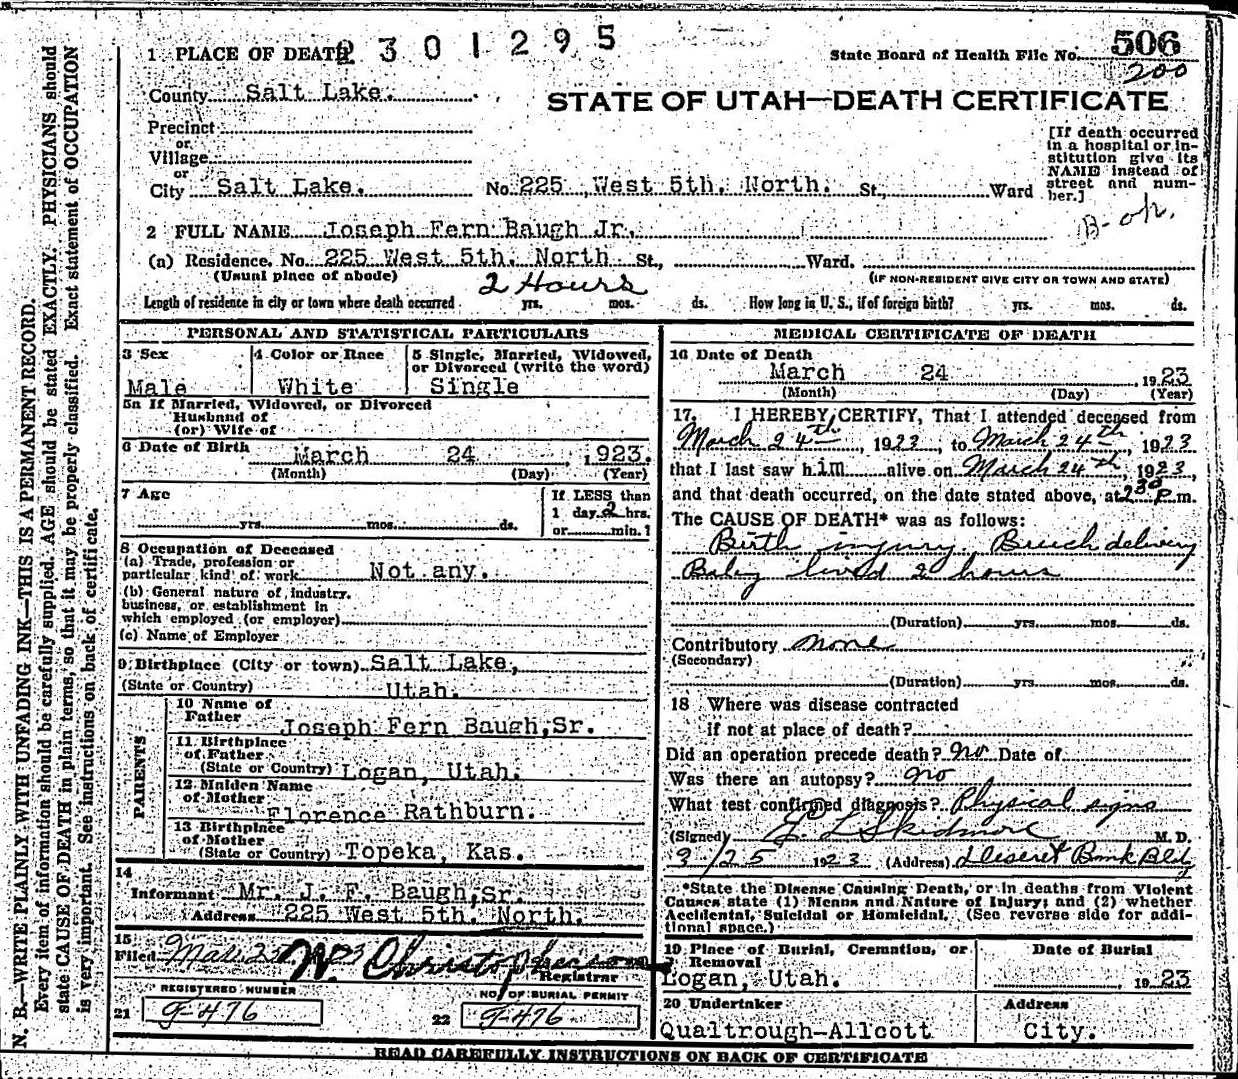 2301295
1 PLACE OF DEATH
State Board of Health File No. 506
200
County Salt Lake.
STATE OF UTAH—DEATH CERTIFICATE
Precinct
or
Village
or
City Salt Lake. No. 225 West 5th. North. St., Ward
[If death occurred
in a hospital or in-
stitution give its
NAME instead of
street and num-
ber.]
2 FULL NAME Joseph Fern Baugh Jr.
(a) Residence. No. 225 West 5th. North St., Ward.
(Usual place of abode)
(IF NON-RESIDENT GIVE CITY OR TOWN AND STATE)
2 Hours
Length of residence in city or town where death occurred yrs. mos. ds. How long in U. S., if of foreign birth? yrs. mos. ds.
PERSONAL AND STATISTICAL PARTICULARS
3 Sex
Male
4 Color or Race
White
5 Single, Married, Widowed,
or Divorced (write the word)
Single
5a If Married, Widowed, or Divorced
Husband of
(or) Wife of
6 Date of Birth March 24 1923.
(Month) (Day) (Year)
7 Age
yrs. mos. ds.
If LESS than
1 day 2 hrs.
or min.?
8 Occupation of Deceased
(a) Trade, profession or
particular kind of work Not any.
(b) General nature of industry,
business, or establishment in
which employed (or employer)
(c) Name of Employer
9 Birthplace (City or town) Salt Lake,
(State or Country) Utah.
PARENTS
10 Name of
Father Joseph Fern Baugh, Sr.
11 Birthplace
of Father
(State or Country) Logan, Utah.
12 Maiden Name
of Mother Florence Rathburn.
13 Birthplace
of Mother
(State or Country) Topeka, Kas.
14
Informant Mr. J. F. Baugh, Sr.
Address 225 West 5th. North.
15
Filed Mar. 25 23 W. Christopherson
Registrar
REGISTERED NUMBER
21 G-476
NO. OF BURIAL PERMIT
22 G-476
MEDICAL CERTIFICATE OF DEATH
16 Date of Death
March 24 1923
(Month) (Day) (Year)
17. I HEREBY CERTIFY, That I attended deceased from
March 24th, 1923, to March 24th, 1923
that I last saw him alive on March 24th, 1923,
and that death occurred, on the date stated above, at 2:30 P.m.
The CAUSE OF DEATH* was as follows:
Birth injury. Breech delivery
Baby lived 2 hours
(Duration) yrs. mos. ds.
Contributory none
(Secondary)
(Duration) yrs. mos. ds.
18 Where was disease contracted
if not at place of death?
Did an operation precede death? no Date of
Was there an autopsy? no
What test confirmed diagnosis? Physical signs
(Signed) L Skidmore M. D.
3/25 1923 (Address) Deseret Bank Bldg
*State the Disease Causing Death, or in deaths from Violent
Causes state (1) Means and Nature of Injury; and (2) whether
Accidental, Suicidal or Homicidal. (See reverse side for addi-
tional space.)
19 Place of Burial, Cremation, or
Removal
Logan, Utah.
Date of Burial
1923
20 Undertaker
Qualtrough-Allcott
Address
City.
READ CAREFULLY INSTRUCTIONS ON BACK OF CERTIFICATE
N. B.—WRITE PLAINLY WITH UNFADING INK—THIS IS A PERMANENT RECORD.
Every item of information should be carefully supplied. AGE should be stated EXACTLY. PHYSICIANS should
state CAUSE OF DEATH in plain terms, so that it may be properly classified. Exact statement of OCCUPATION
is very important. See instructions on back of certificate.